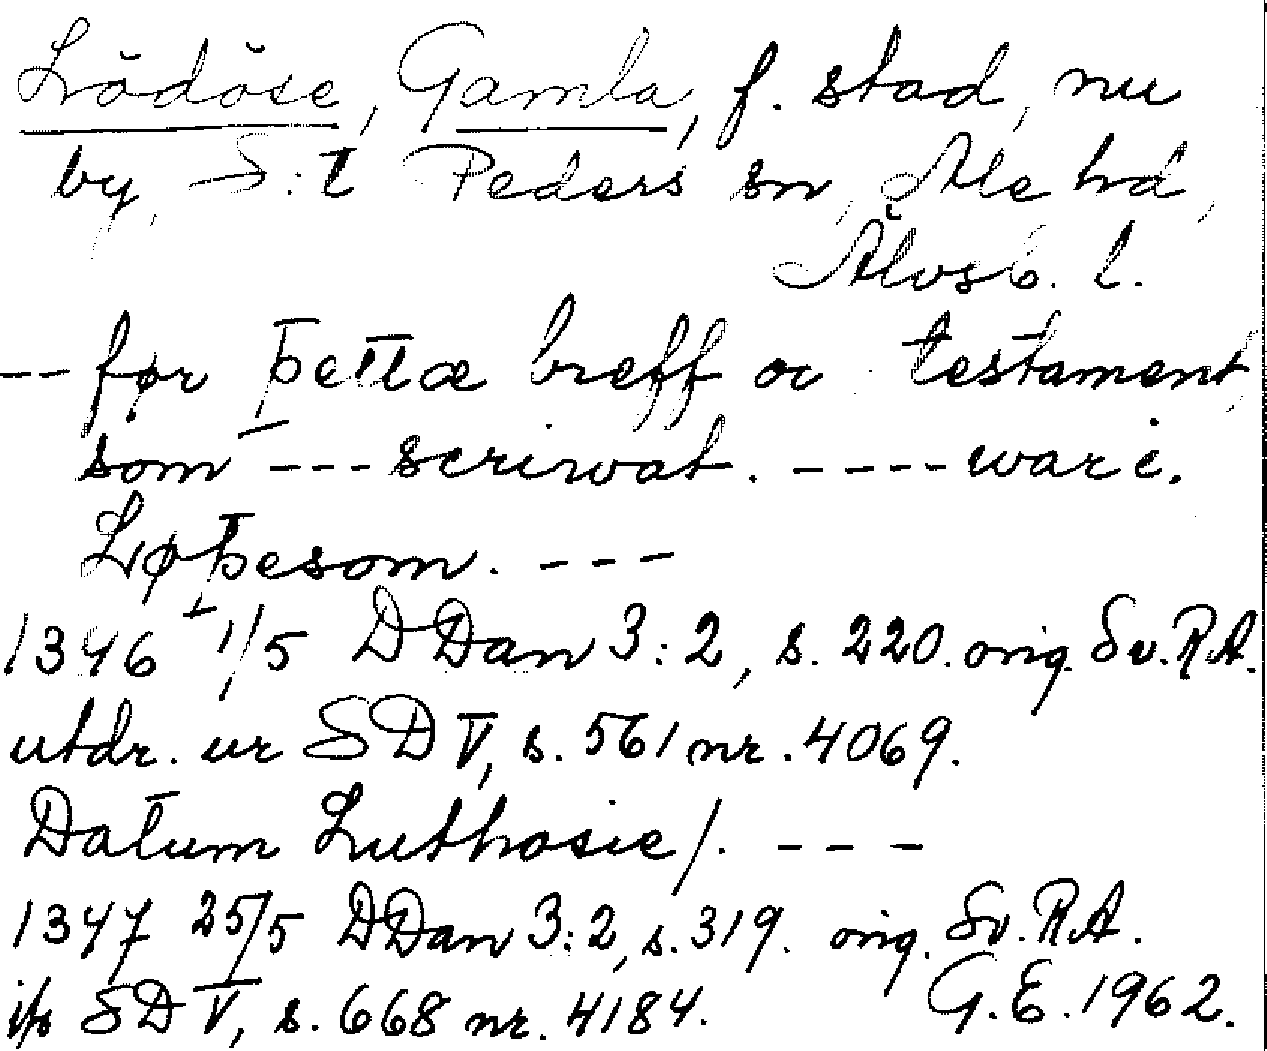 Lödöse, Gamla, f. stad, nu
by, S:t Peders sn, Ale hd,
Älvsb. l.
-- før þettæ breff oc testament,
som --- scriwat. ---- ware.
Løþesom. ---
1346 1/5 DDan 3:2, s. 220. orig. Sv. R.A.
utdr. ur SD V, s. 561 nr. 4069.
Datum Luthosie/. ---
1347 25/5 DDan 3:2, s. 319. orig. Sv. R.A.
SD V, s. 668 nr. 4184. G.E. 1962.